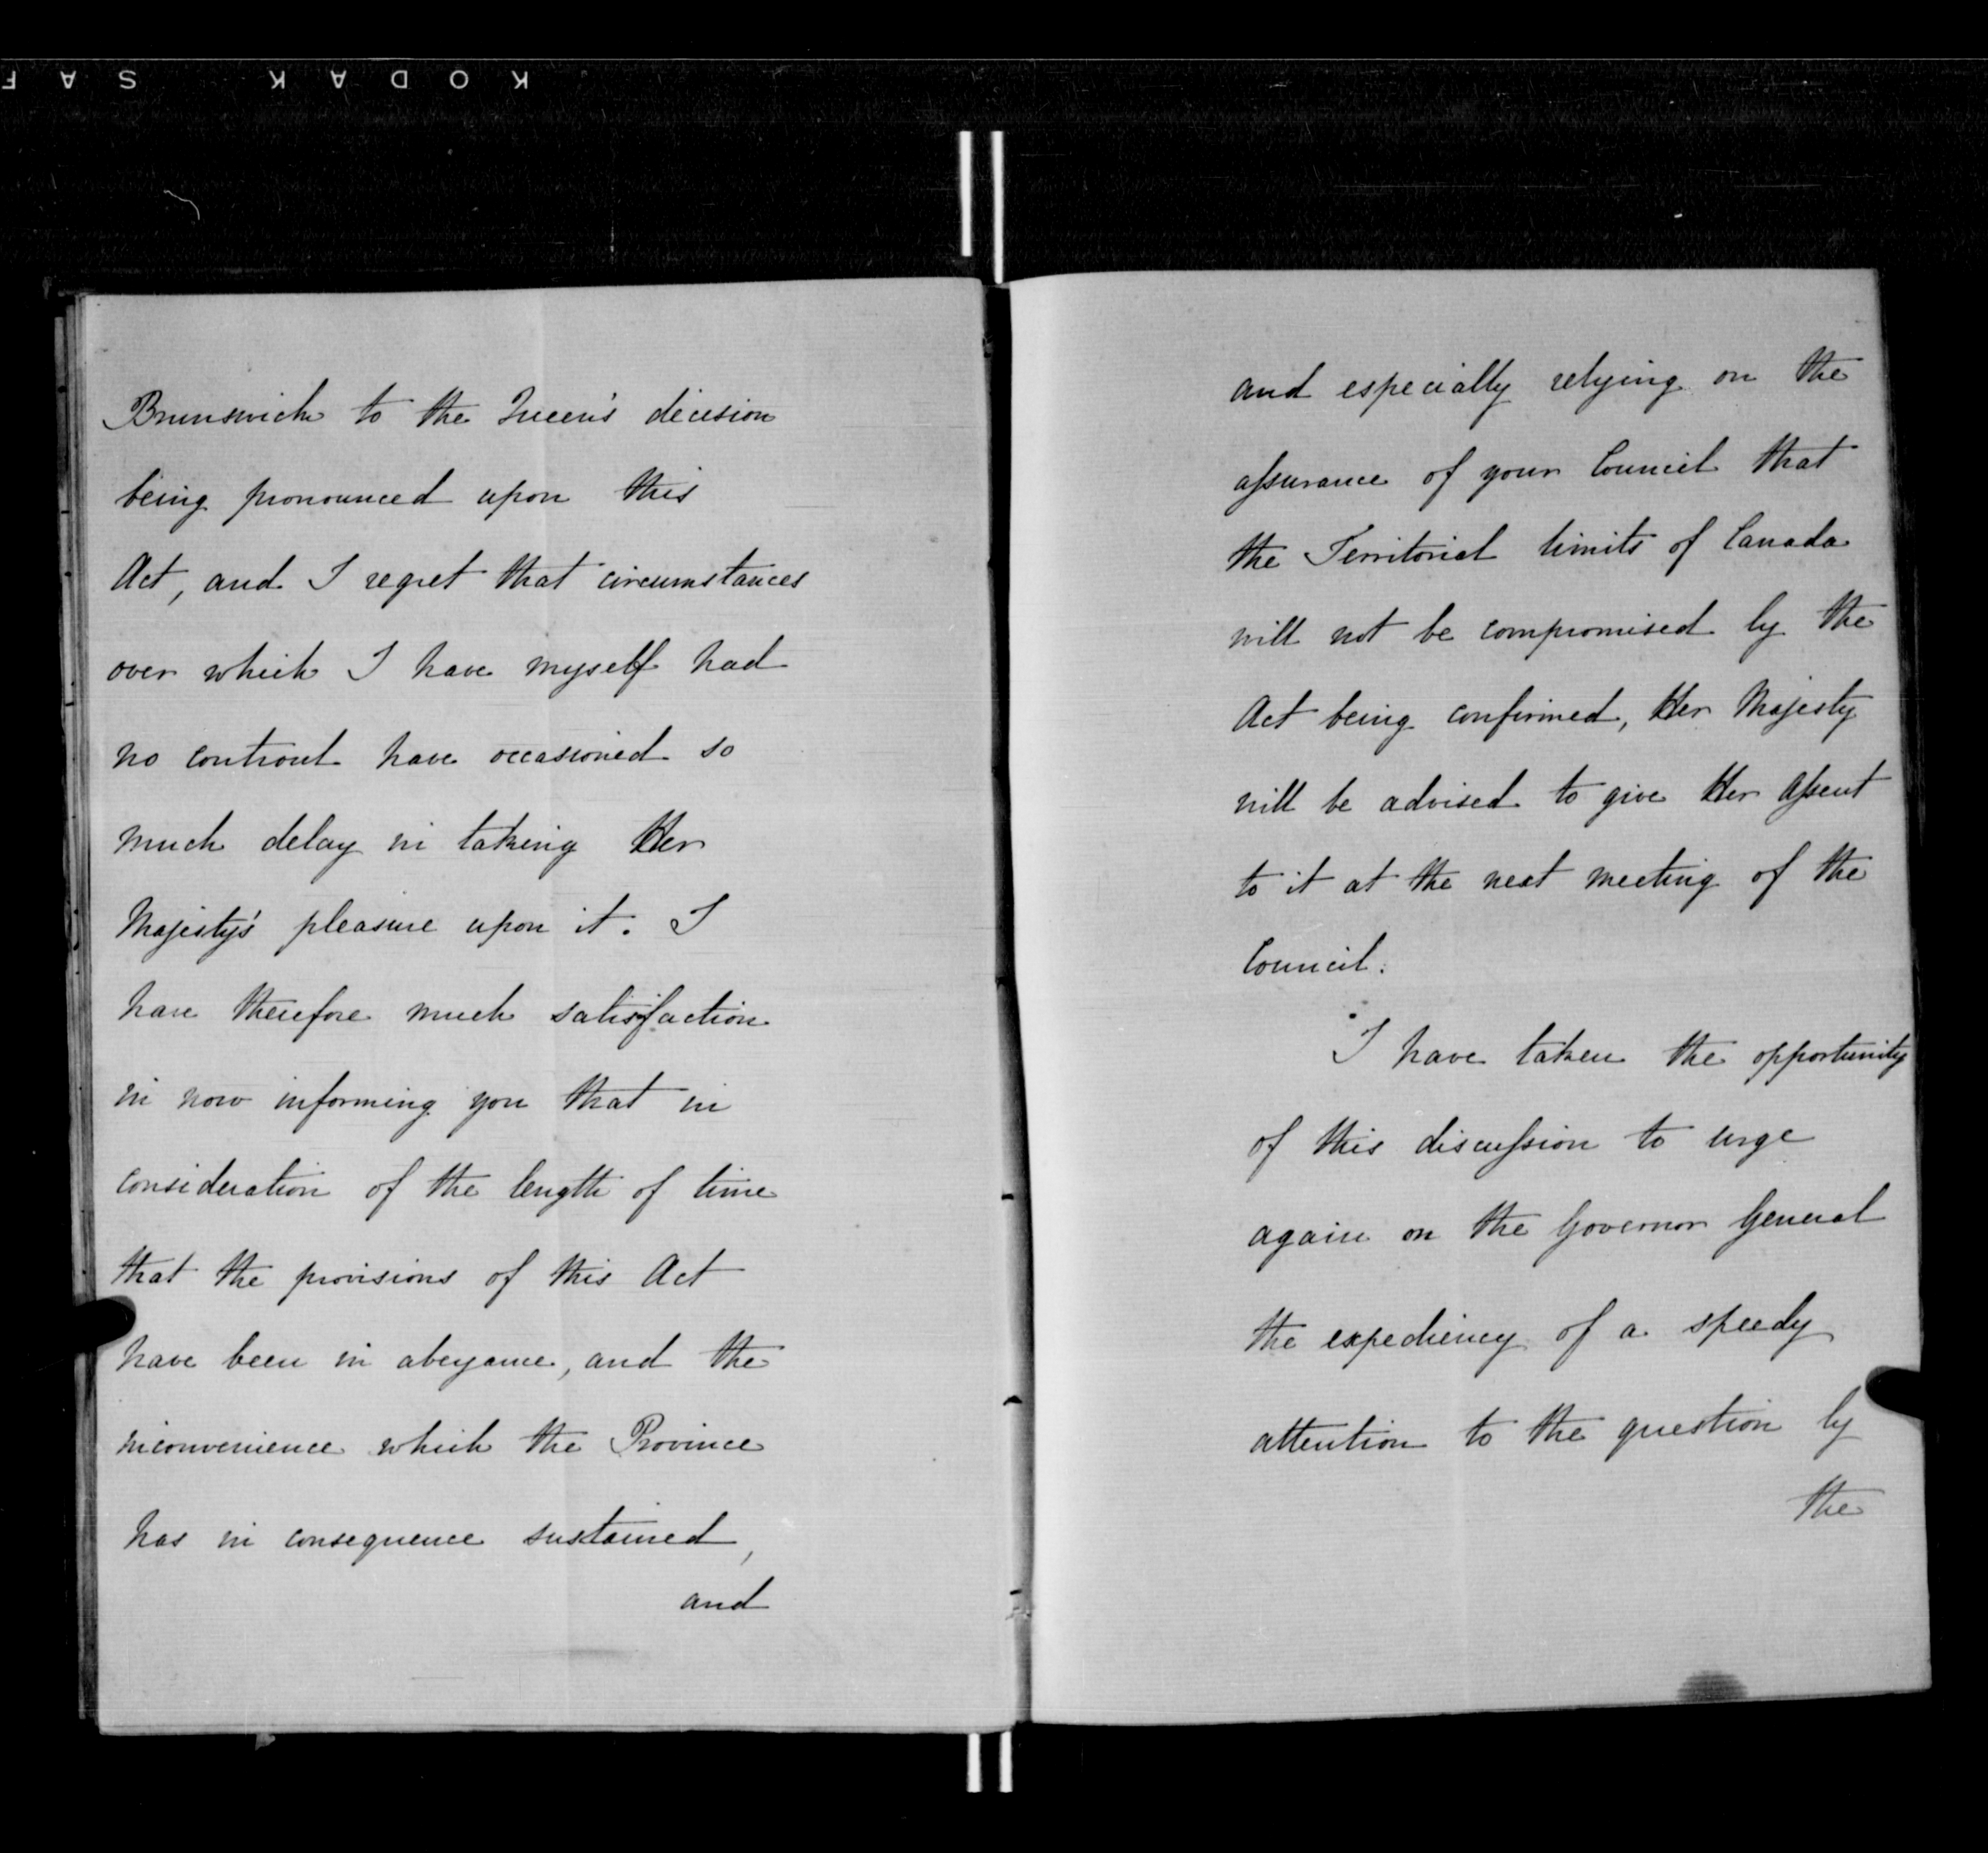 KODAK SAF
Brunswick to the Queen's decision
being pronounced upon this
Act, and I regret that circumstances
over which I have myself had
no controul have occasioned so
much delay in taking Her
Majesty's pleasure upon it. I
have therefore much satisfaction
in now informing you that in
consideration of the length of time
that the provisions of this Act
have been in abeyance, and the
inconvenience which the Province
has in consequence sustained,
and
and especially relying on the
assurance of your Council that
the Territorial limits of Canada
will not be compromised by the
Act being confirmed, Her Majesty
will be advised to give Her Assent
to it at the next meeting of the
Council.
I have taken the opportunity
of this discussion to urge
again on the Governor General
the expediency of a speedy
attention to the question by
the